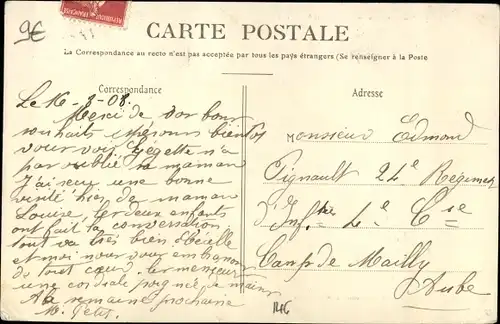 9€
CARTE POSTALE
La Correspondance au recto n'est pas acceptée par tous les pays étrangers (Se renseigner à la Poste
Correspondance
Le 16-3-08.
Merci de vos bons
souhaits espérons bientôt
vous voir Gégette n'a
pas oublié sa maman
J'ai reçu une bonne
visite hier de maman
Louise, les deux enfants
ont fait la conversation
tout va très bien
et moi nous vous embrassons
de tout cœur
une cordiale poignée de main
A la semaine prochaine
M.
Adresse
Monsieur Edmond
Pignault 24e Regiment
d'Inf.rie 4e Cie
Camp de Mailly
Aube
146